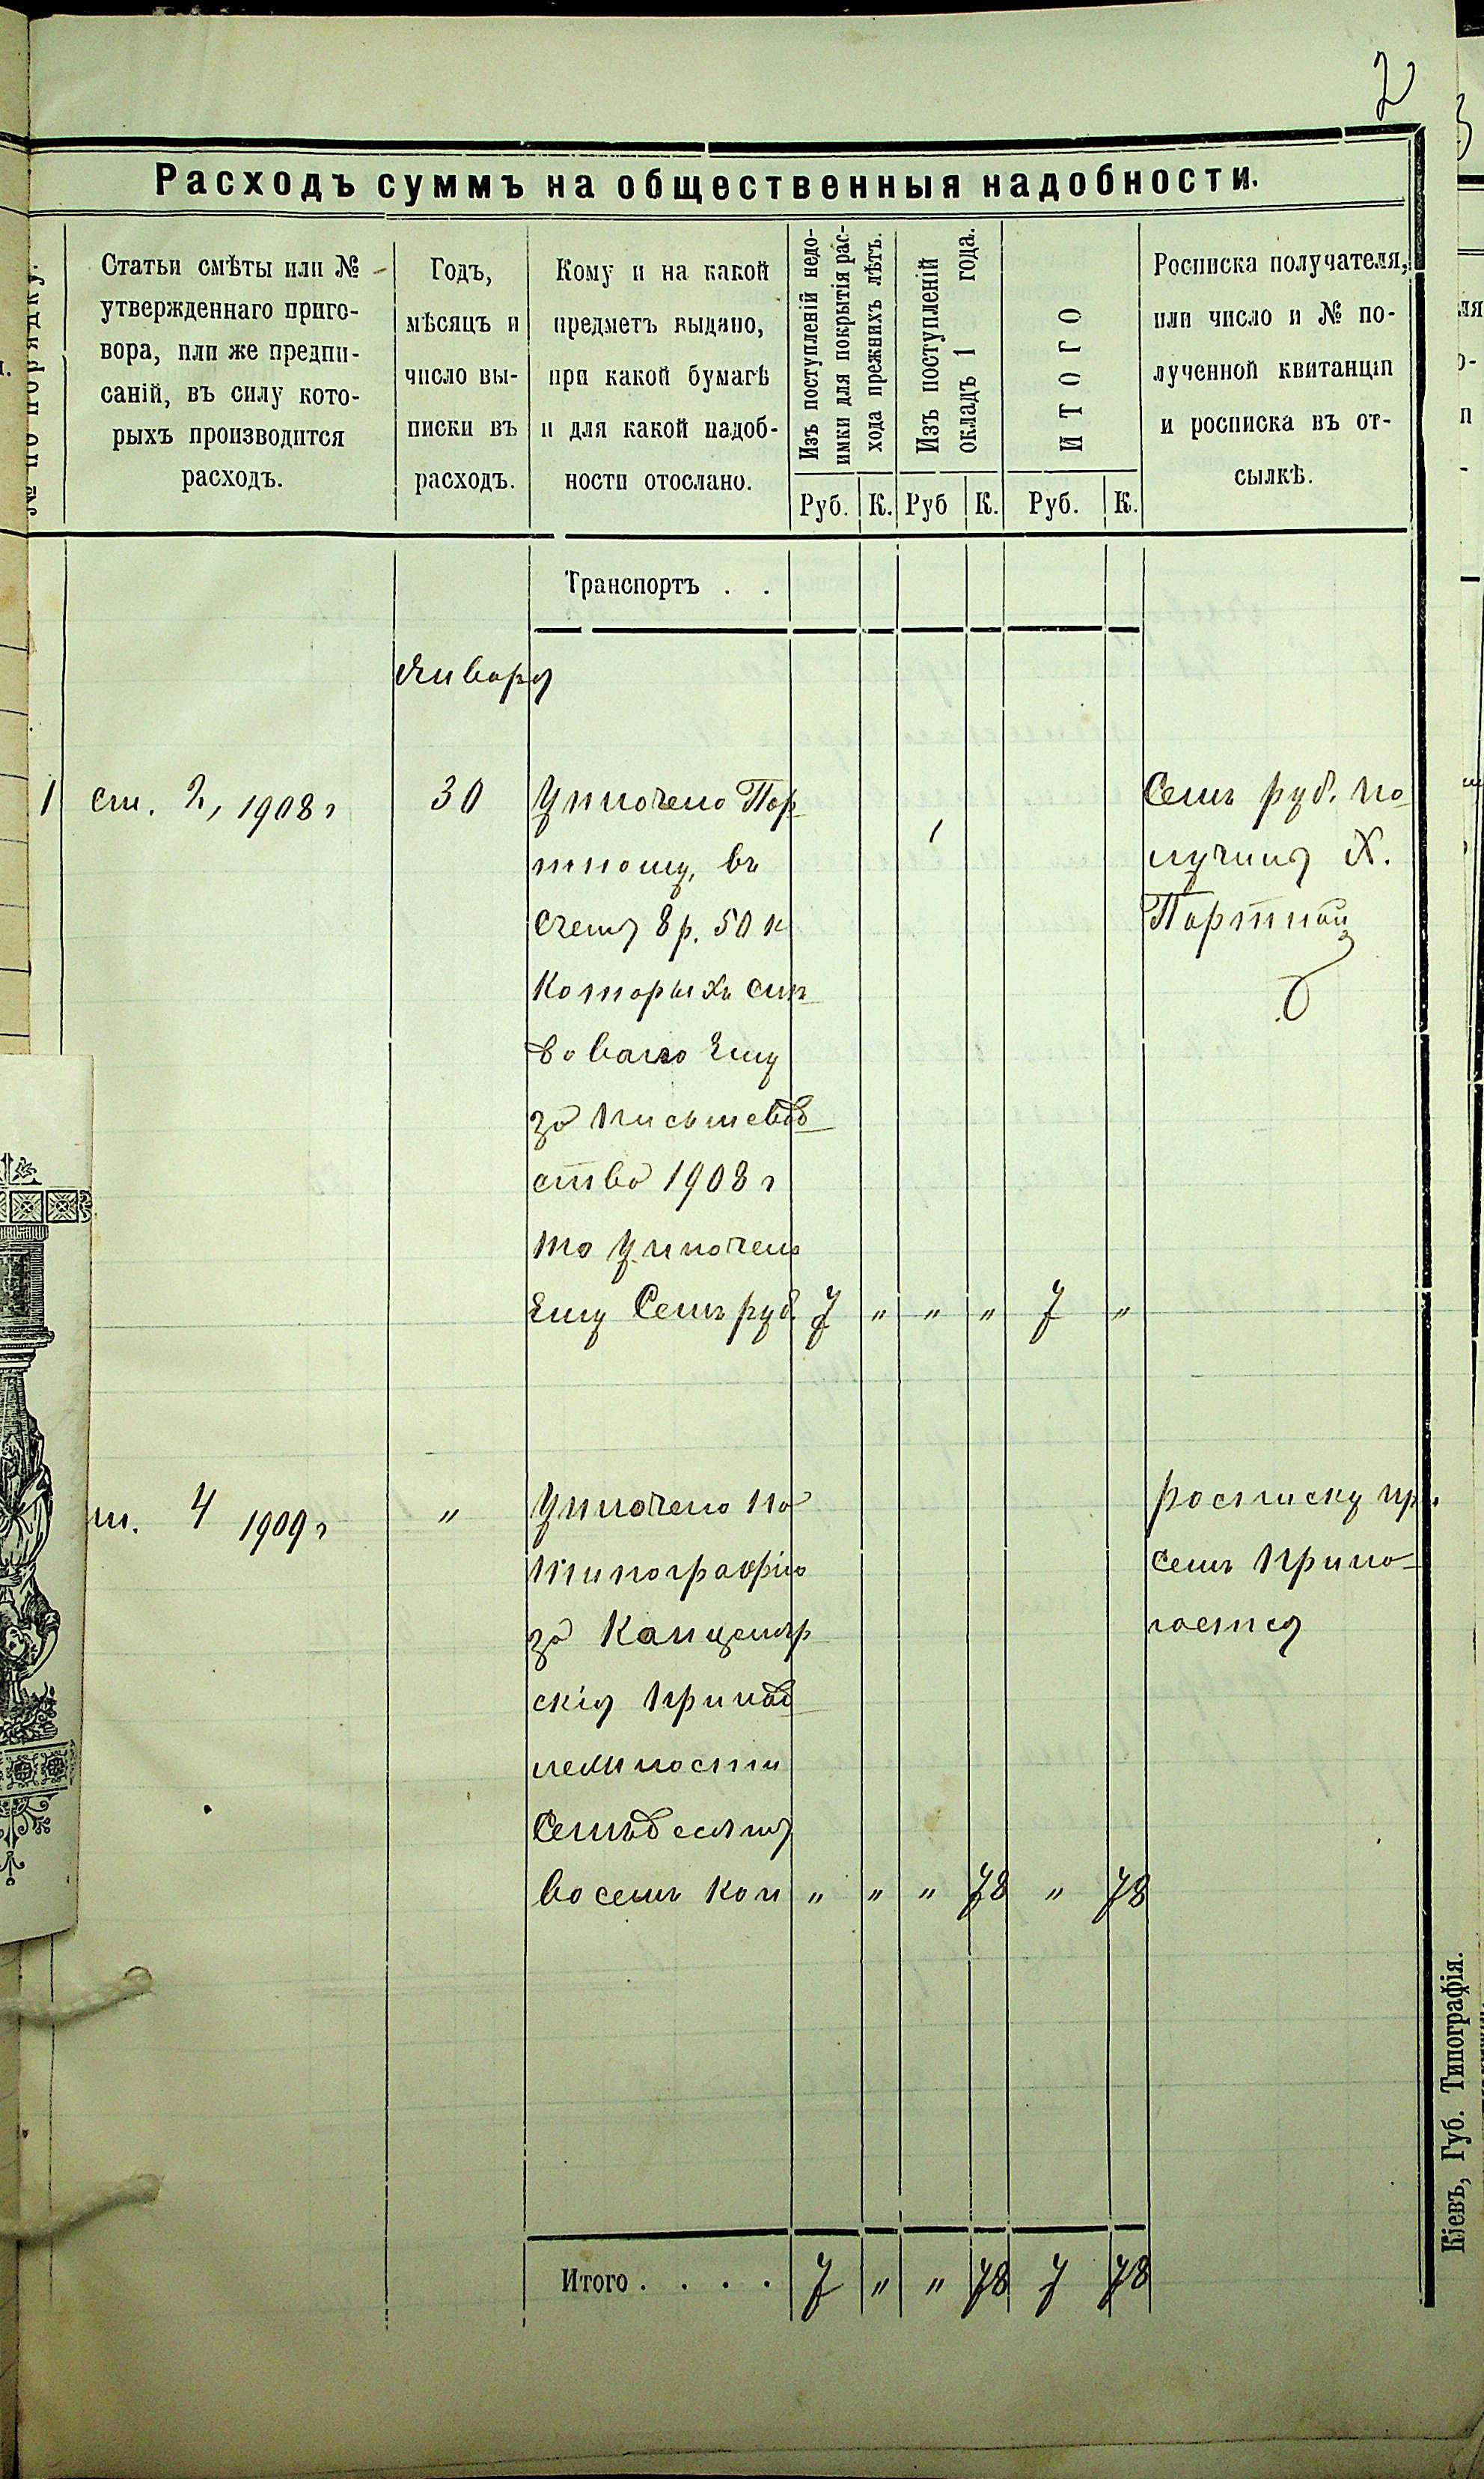 2
Расходъ суммъ на общественныя надобности.
№ по порядку.
Статьи смѣты или №
утвержденнаго приго-
вора, или же предпи-
саній, въ силу кото-
рыхъ производится
расходъ.
Годъ,
мѣсяцъ и
число вы-
писки въ
расходъ.
Кому и на какой
предметъ выдано,
при какой бумагѣ
и для какой надоб-
ности отослано.
Изъ поступленій недо-
имки для покрытія рас-
хода прежнихъ лѣтъ.
Изъ поступленій
окладъ 1 года.
ИТОГО
Руб. К. Руб К. Руб. К.
Росписка получателя,
или число и № по-
лученной квитанціи
и росписка въ от-
сылкѣ.
Транспортъ . .
Января
1 ст. 2, 1908 г 30 Уплочено Пор
тному, въ
счетъ 8 р. 50 к
которыхъ слѣ
довало Ему
за письмовод
ство 1908 г
то уплочено
Ему Семь руб. 7 " " " 7 "
Семь руб. по
лучилъ Х.
Портной
ст. 4 1909 г " Уплочено по
типографію
за Канцеляр
скія принад
лежности
Семьдесятъ
восемь коп " " " 78 " 78
росписку при
семъ прила
гается
Итого . . . . 7 " " 78 7 78
Кіевъ, Губ. Типографія.